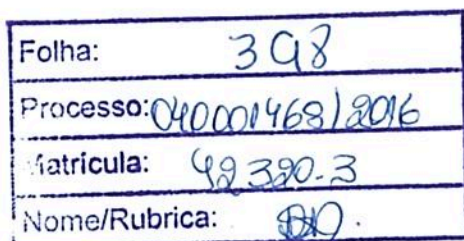 Folha: 398
Processo: 040001468/2016
Matrícula: 42320-3
Nome/Rubrica: